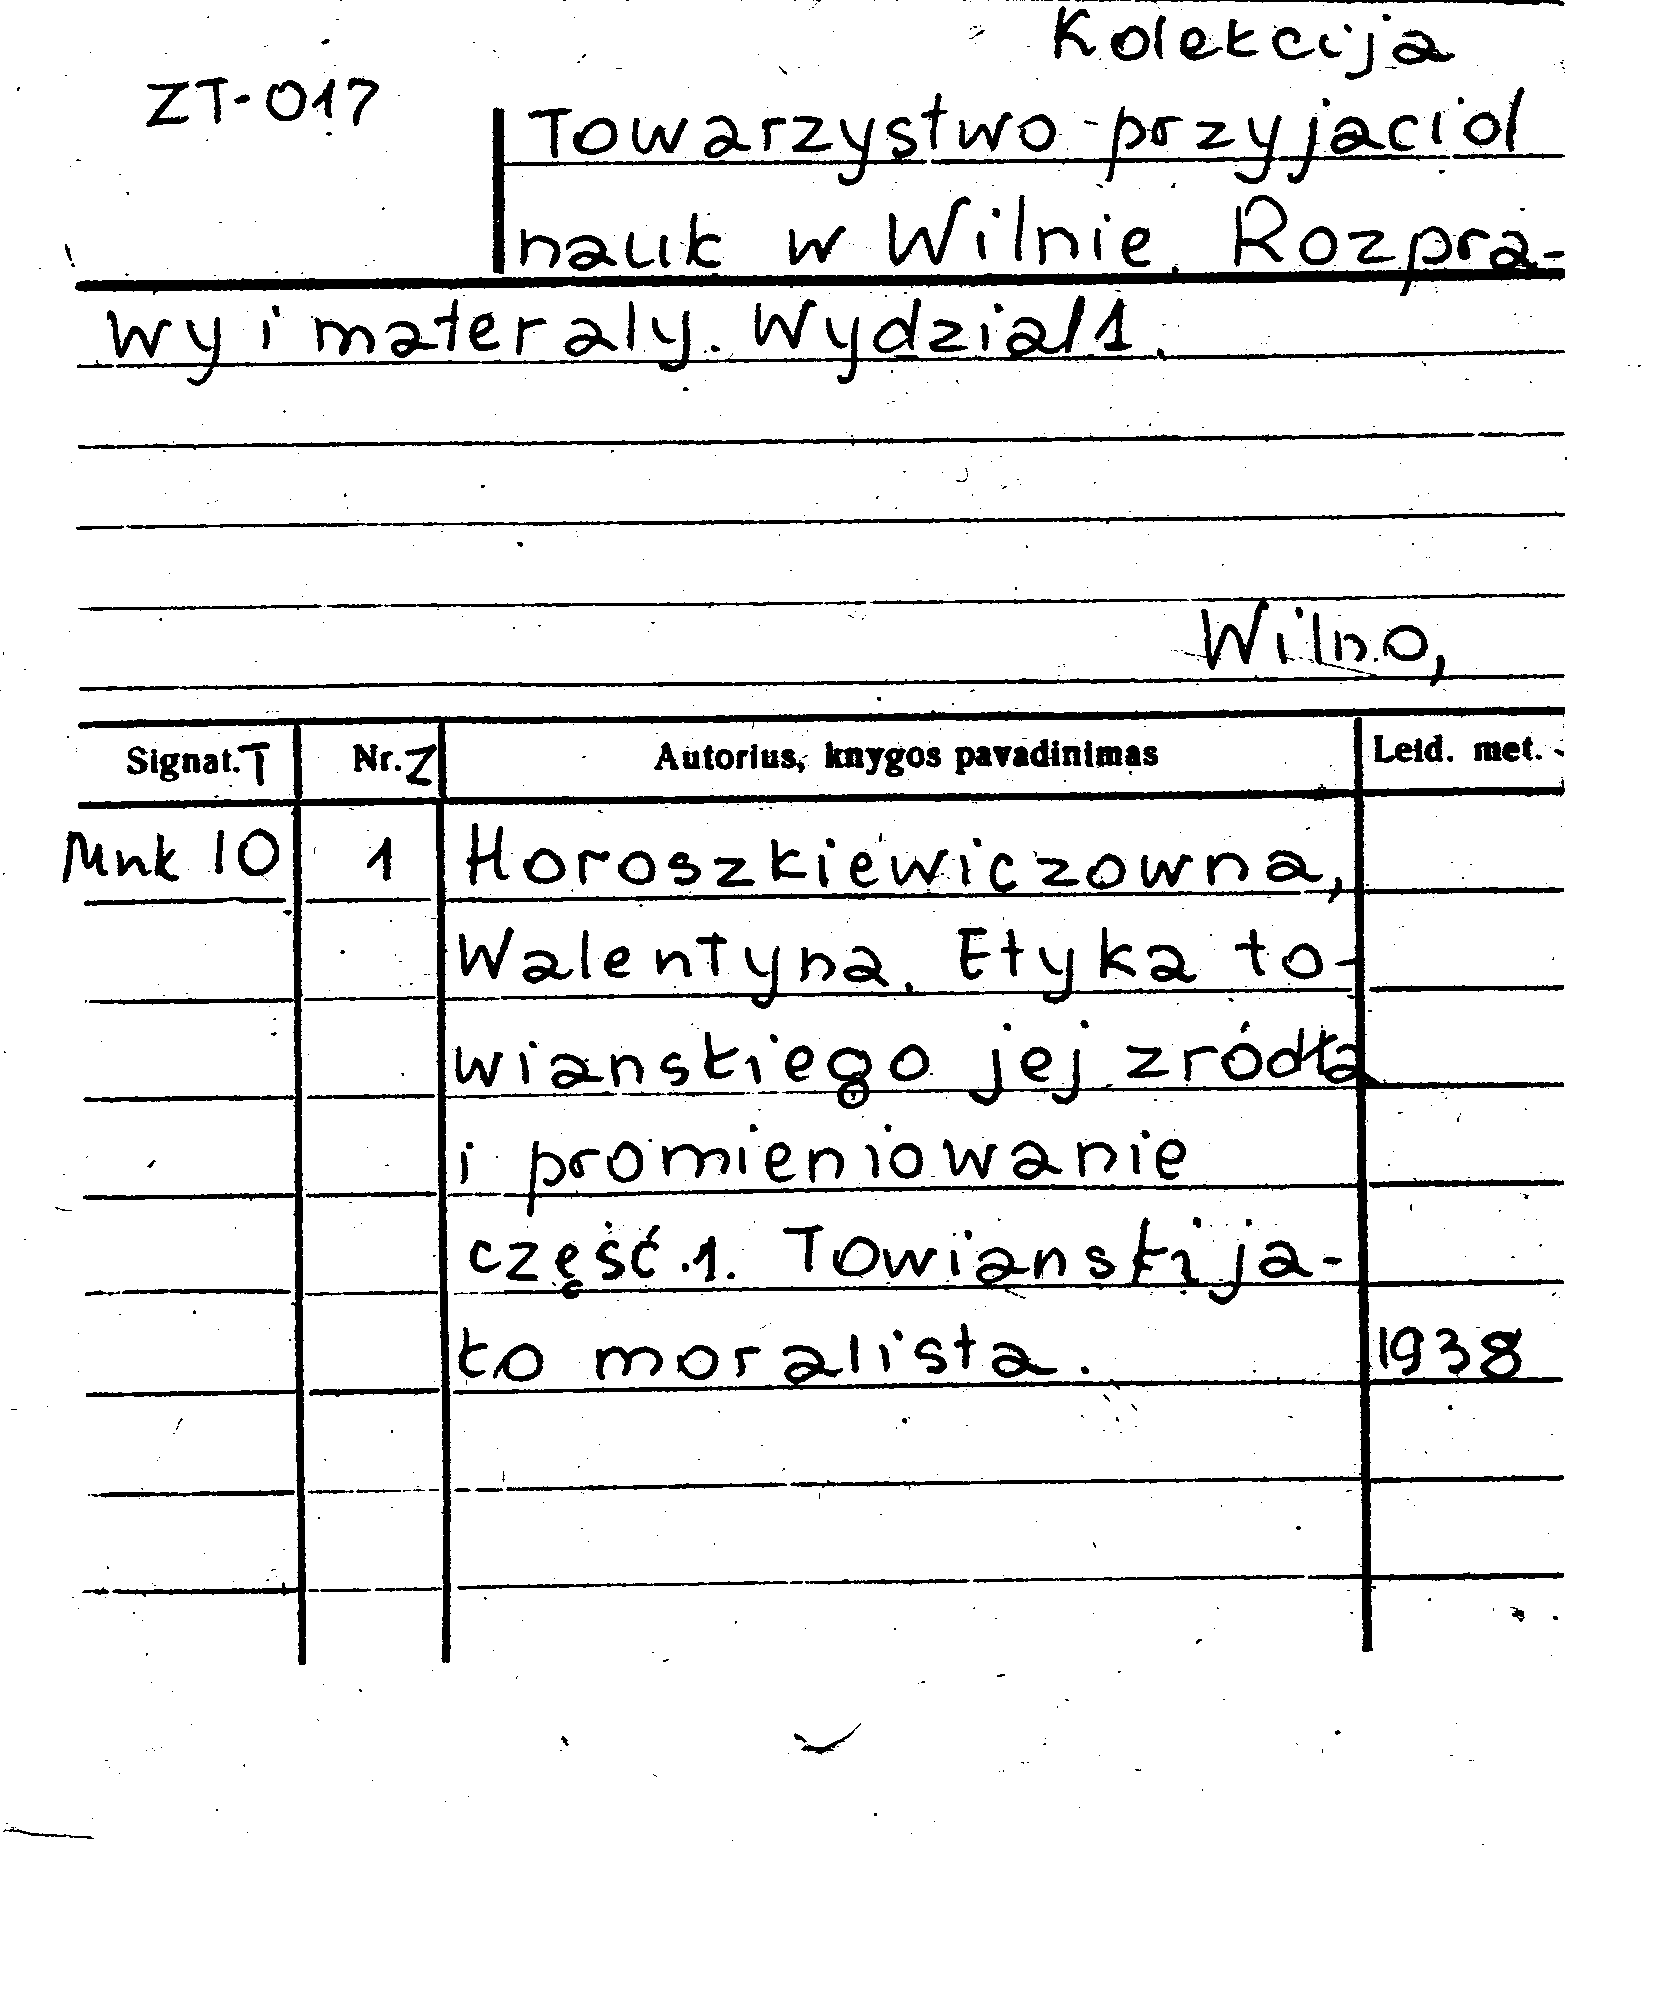 Kolekcija
ZT-017
Towarzystwo przyjaciol
nauk w Wilnie. Rozpra-
wy i materaly. Wydzial 1.
Wilno,
Signat. T Nr. Z Autorius, knygos pavadinimas Leid. met.
Mnk 10 1 Horoszkiewiczowna,
Walentyna. Etyka to-
wianskiego jej zródła
i promieniowanie
część.1. Towianski ja-
ko moralista. 1938